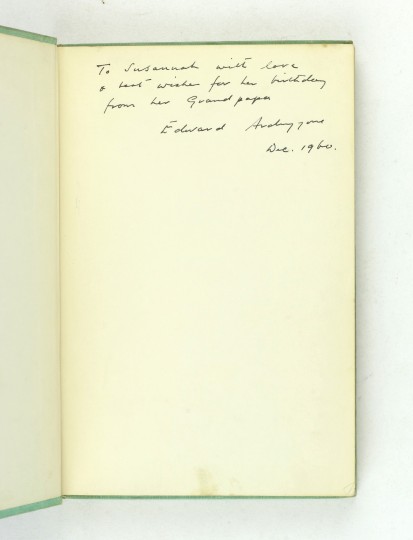 To Susannah with love
& best wishes for her birthday
from her Grandpapa
Edward Ardizzone
Dec. 1960.